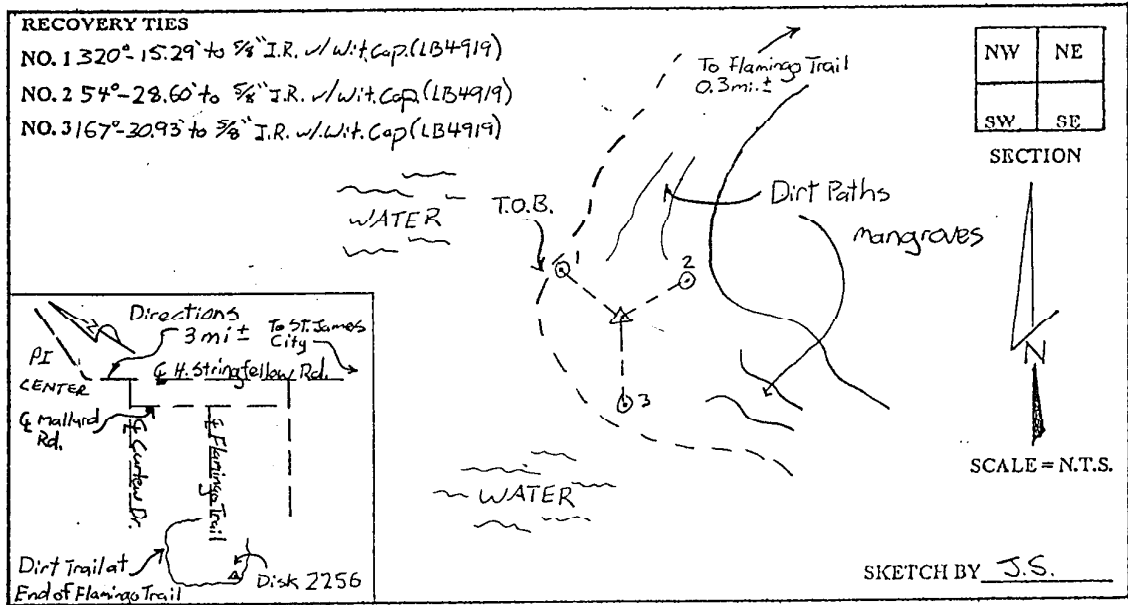 RECOVERY TIES
NO. 1 320°-15.29' to 5/8" I.R. w/ Wit. Cap. (LB4919)
NO. 2 54°-28.60' to 5/8" I.R. w/ Wit. Cap. (LB4919)
NO. 3 167°-30.93' to 5/8" I.R. w/ Wit. Cap (LB4919)
To Flamingo Trail
0.3 mi. ±
NW NE
SW SE
SECTION
WATER
T.O.B.
Dirt Paths
mangroves
1
2
3
N
SCALE = N.T.S.
WATER
SKETCH BY J.S.
N
Directions
3 mi ±
To ST. James
City
PI
CENTER
℄ H. Stringfellow Rd.
℄ Mallard
Rd.
℄ Curlew Dr.
℄ Flamingo Trail
Dirt Trail at
End of Flamingo Trail
Disk 2256